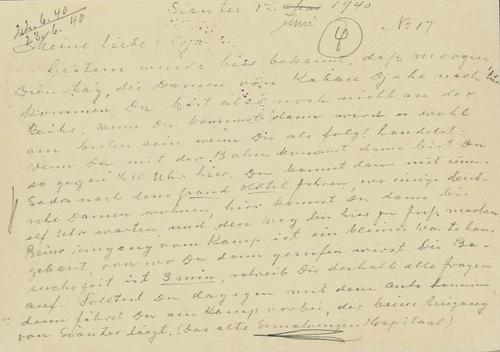 Siantar, 17 Juni 1940 No 17
23. 6. 40
4
Meine liebe
Gestern wurde hier bekannt, daß morgen
Dienstag, die Damen von Kaban Djahe nach
kommen, Du bist also noch nicht an der
Reihe, wenn Du kommst dann wird es wohl
am besten sein wenn Du als folgt handelst:
Wenn Du mit der Bahn kommst dann bist Du
so gegen ½ 10 Uhr hier. Du kannst dann mit einem
Sado nach dem Grand Hotel fahren, wo einige deut-
sche Damen wohnen, hier kannst Du dann bis
elf Uhr warten und den Weg bis hier zu Fuß machen
Beim Eingang vom Kamp ist ein kleines Wartehaus
gebaut, von wo Du dann gerufen wirst Die Be-
suchszeit ist 3 min, schreib Dir deshalb alle Fragen
auf. Solltest Du dagegen mit dem Auto kommen
dann fährst Du am Kamp vorbei, der beim Eingang
von Siantar liegt. (Das alte Simaloengoen Hospitaal)